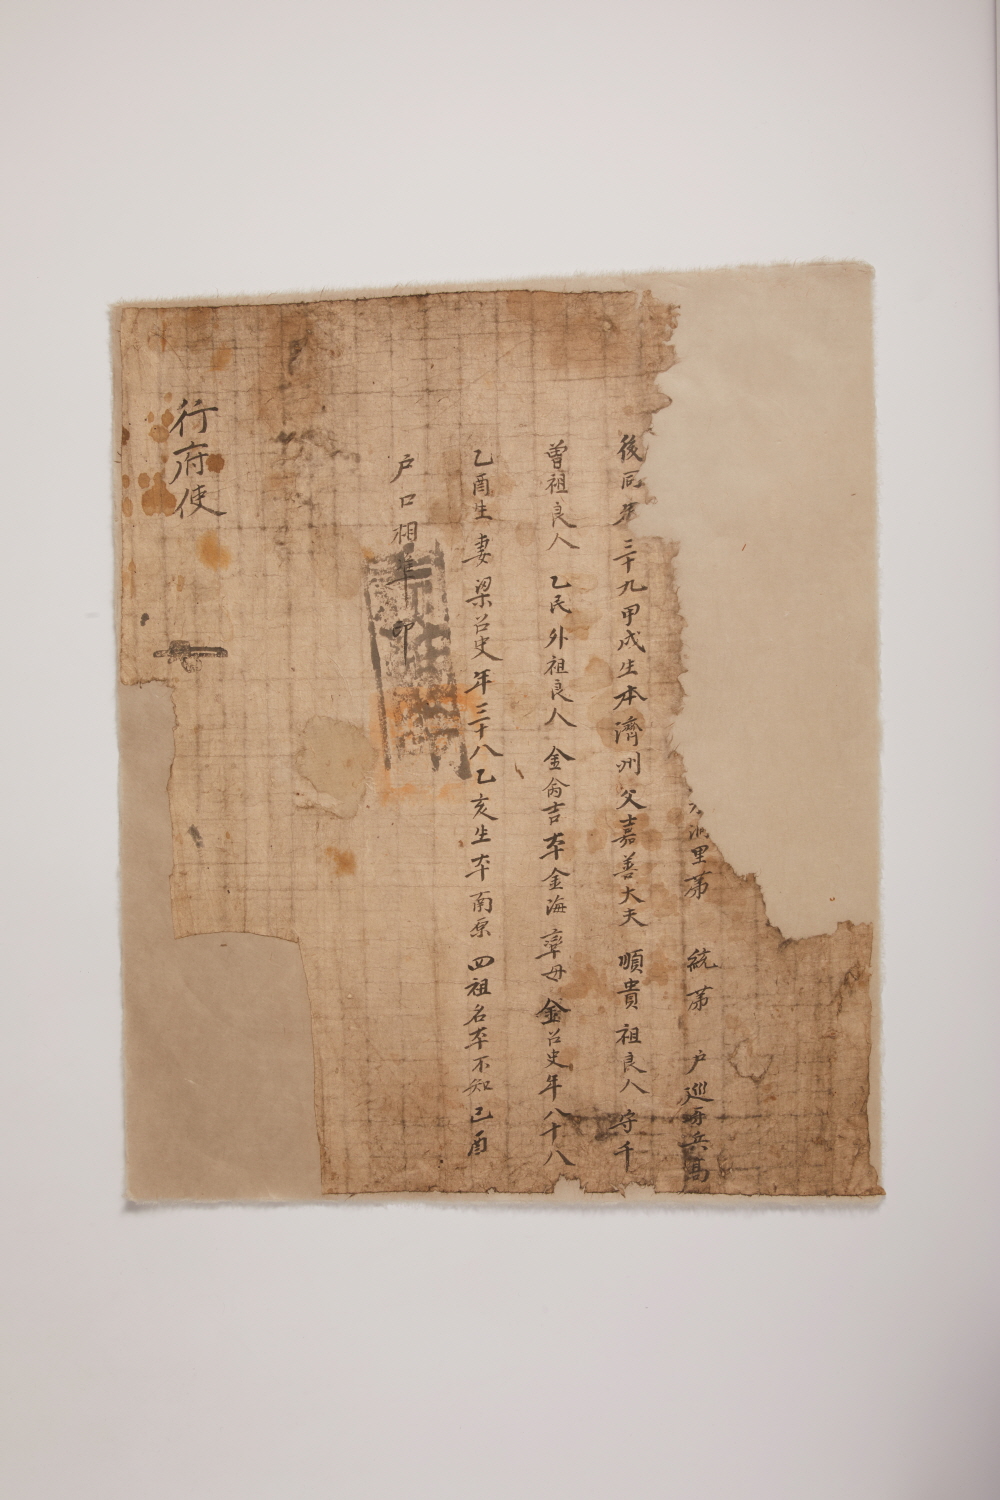 里第 統第 戶 巡別兵高
後同 年三十九甲戌生本濟州父嘉善大夫 順貴 祖良人 守千
曾祖良人 乙民外祖良人 金翁吉本金海率母金召史年八十八
乙酉生妻梁召史年三十八乙亥生本南原 四祖名本不知己酉
戶口相準印
行府使